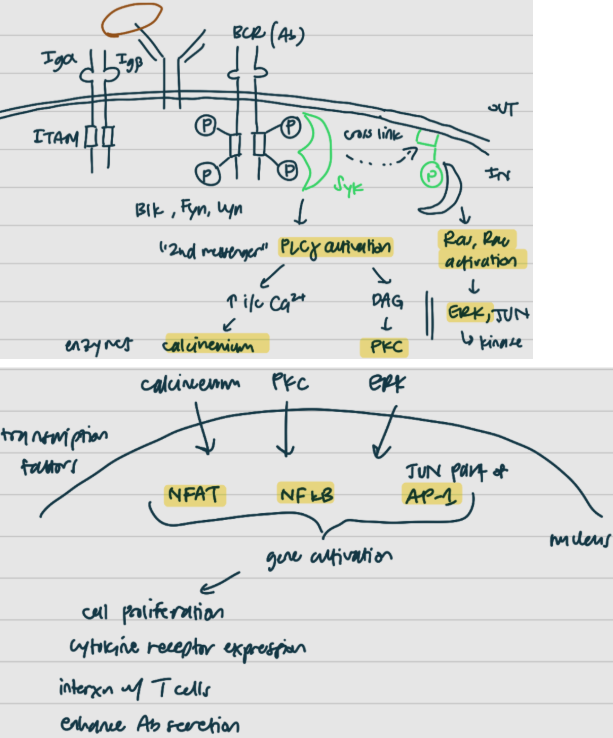 BCR (Ab)
Igα Igβ
OUT
ITAM
P P
P P
cross link
P
IN
Syk
Blk, Fyn, Lyn
"2nd messenger" PLCγ activation
Ras, Rac
activation
↑ i/c Ca²⁺
DAG
ERK, JUN
enzymes
calcinenium
PKC
↳ kinase
calcinenium PKC ERK
transcription
factors
JUN part of
NFAT NFκB AP-1
nucleus
gene activation
cell proliferation
cytokine receptor expression
interxn w/ T cells
enhance Ab secretion